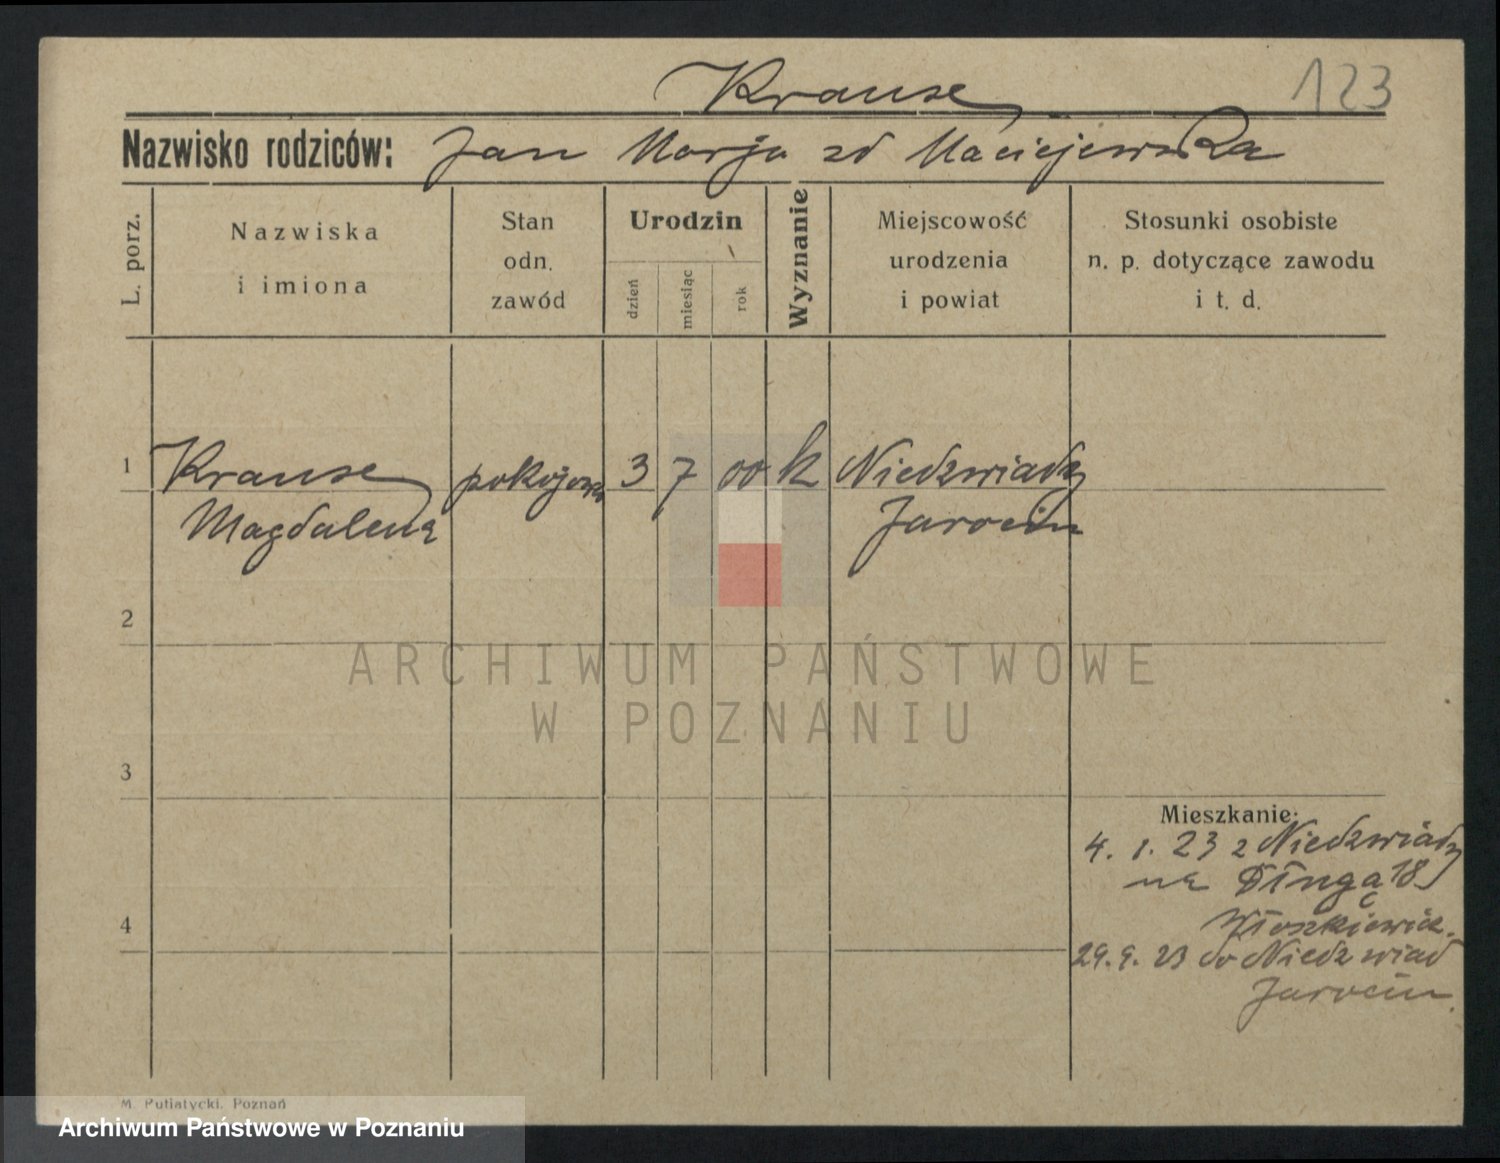 Krause
123
Nazwisko rodziców: Jan Marja zd Maciejewska
L. porz.
Nazwiska
i imiona
Stan
odn.
zawód
Urodzin
dzień
miesiąc
rok
Wyznanie
Miejscowość
urodzenia
i powiat
Stosunki osobiste
n. p. dotyczące zawodu
i t. d.
1 Krause pokojowa 3 7 00 k Niedzwiady
Magdalena Jarocin
2
ARCHIWUM PAŃSTWOWE
W POZNANIU
3
Mieszkanie:
4. 1. 23 z Niedzwiady
na Długą 18
4
29. 9. 23 do Niedzwiad
Jarocin.
M. Putiatycki. Poznań
Archiwum Państwowe w Poznaniu